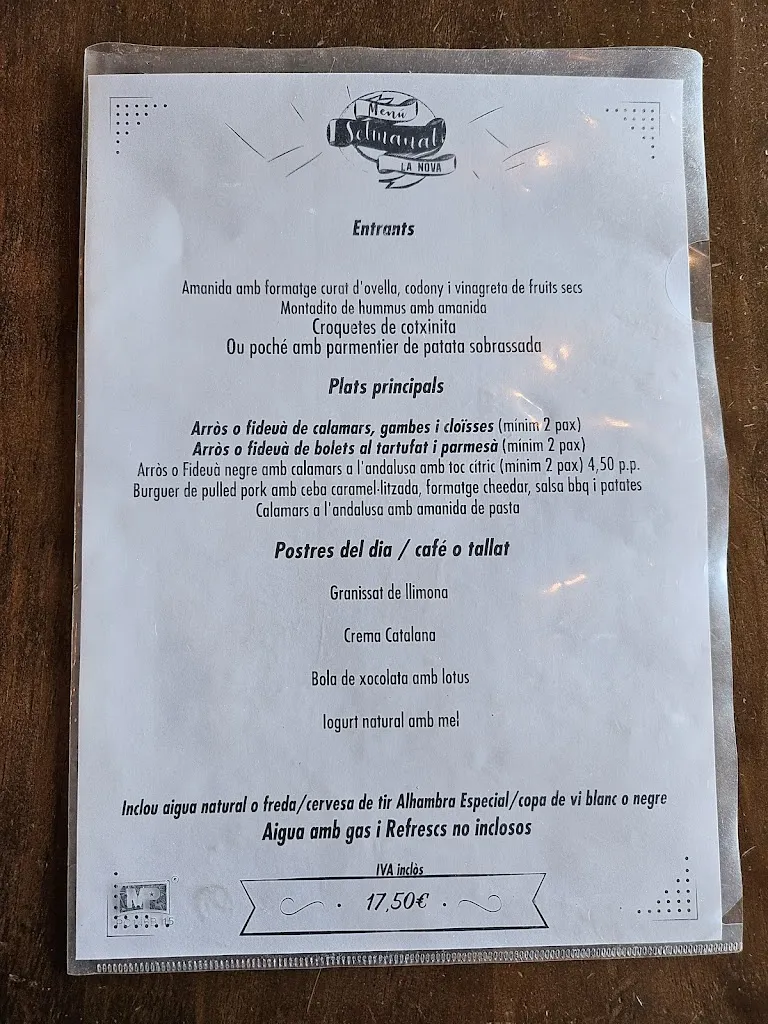 Menú
Setmanal
LA NOVA
Entrants
Amanida amb formatge curat d'ovella, codony i vinagreta de fruits secs
Montadito de hummus amb amanida
Croquetes de cotxinita
Ou poché amb parmentier de patata sobrassada
Plats principals
Arròs o fideuà de calamars, gambes i cloïsses (mínim 2 pax)
Arròs o fideuà de bolets al tartufat i parmesà (mínim 2 pax)
Arròs o Fideuà negre amb calamars a l'andalusa amb toc cítric (mínim 2 pax) 4,50 p.p.
Burguer de pulled pork amb ceba caramel·litzada, formatge cheedar, salsa bbq i patates
Calamars a l'andalusa amb amanida de pasta
Postres del dia / café o tallat
Granissat de llimona
Crema Catalana
Bola de xocolata amb lotus
Iogurt natural amb mel
Inclou aigua natural o freda/cervesa de tir Alhambra Especial/copa de vi blanc o negre
Aigua amb gas i Refrescs no inclosos
IVA inclòs
17,50€